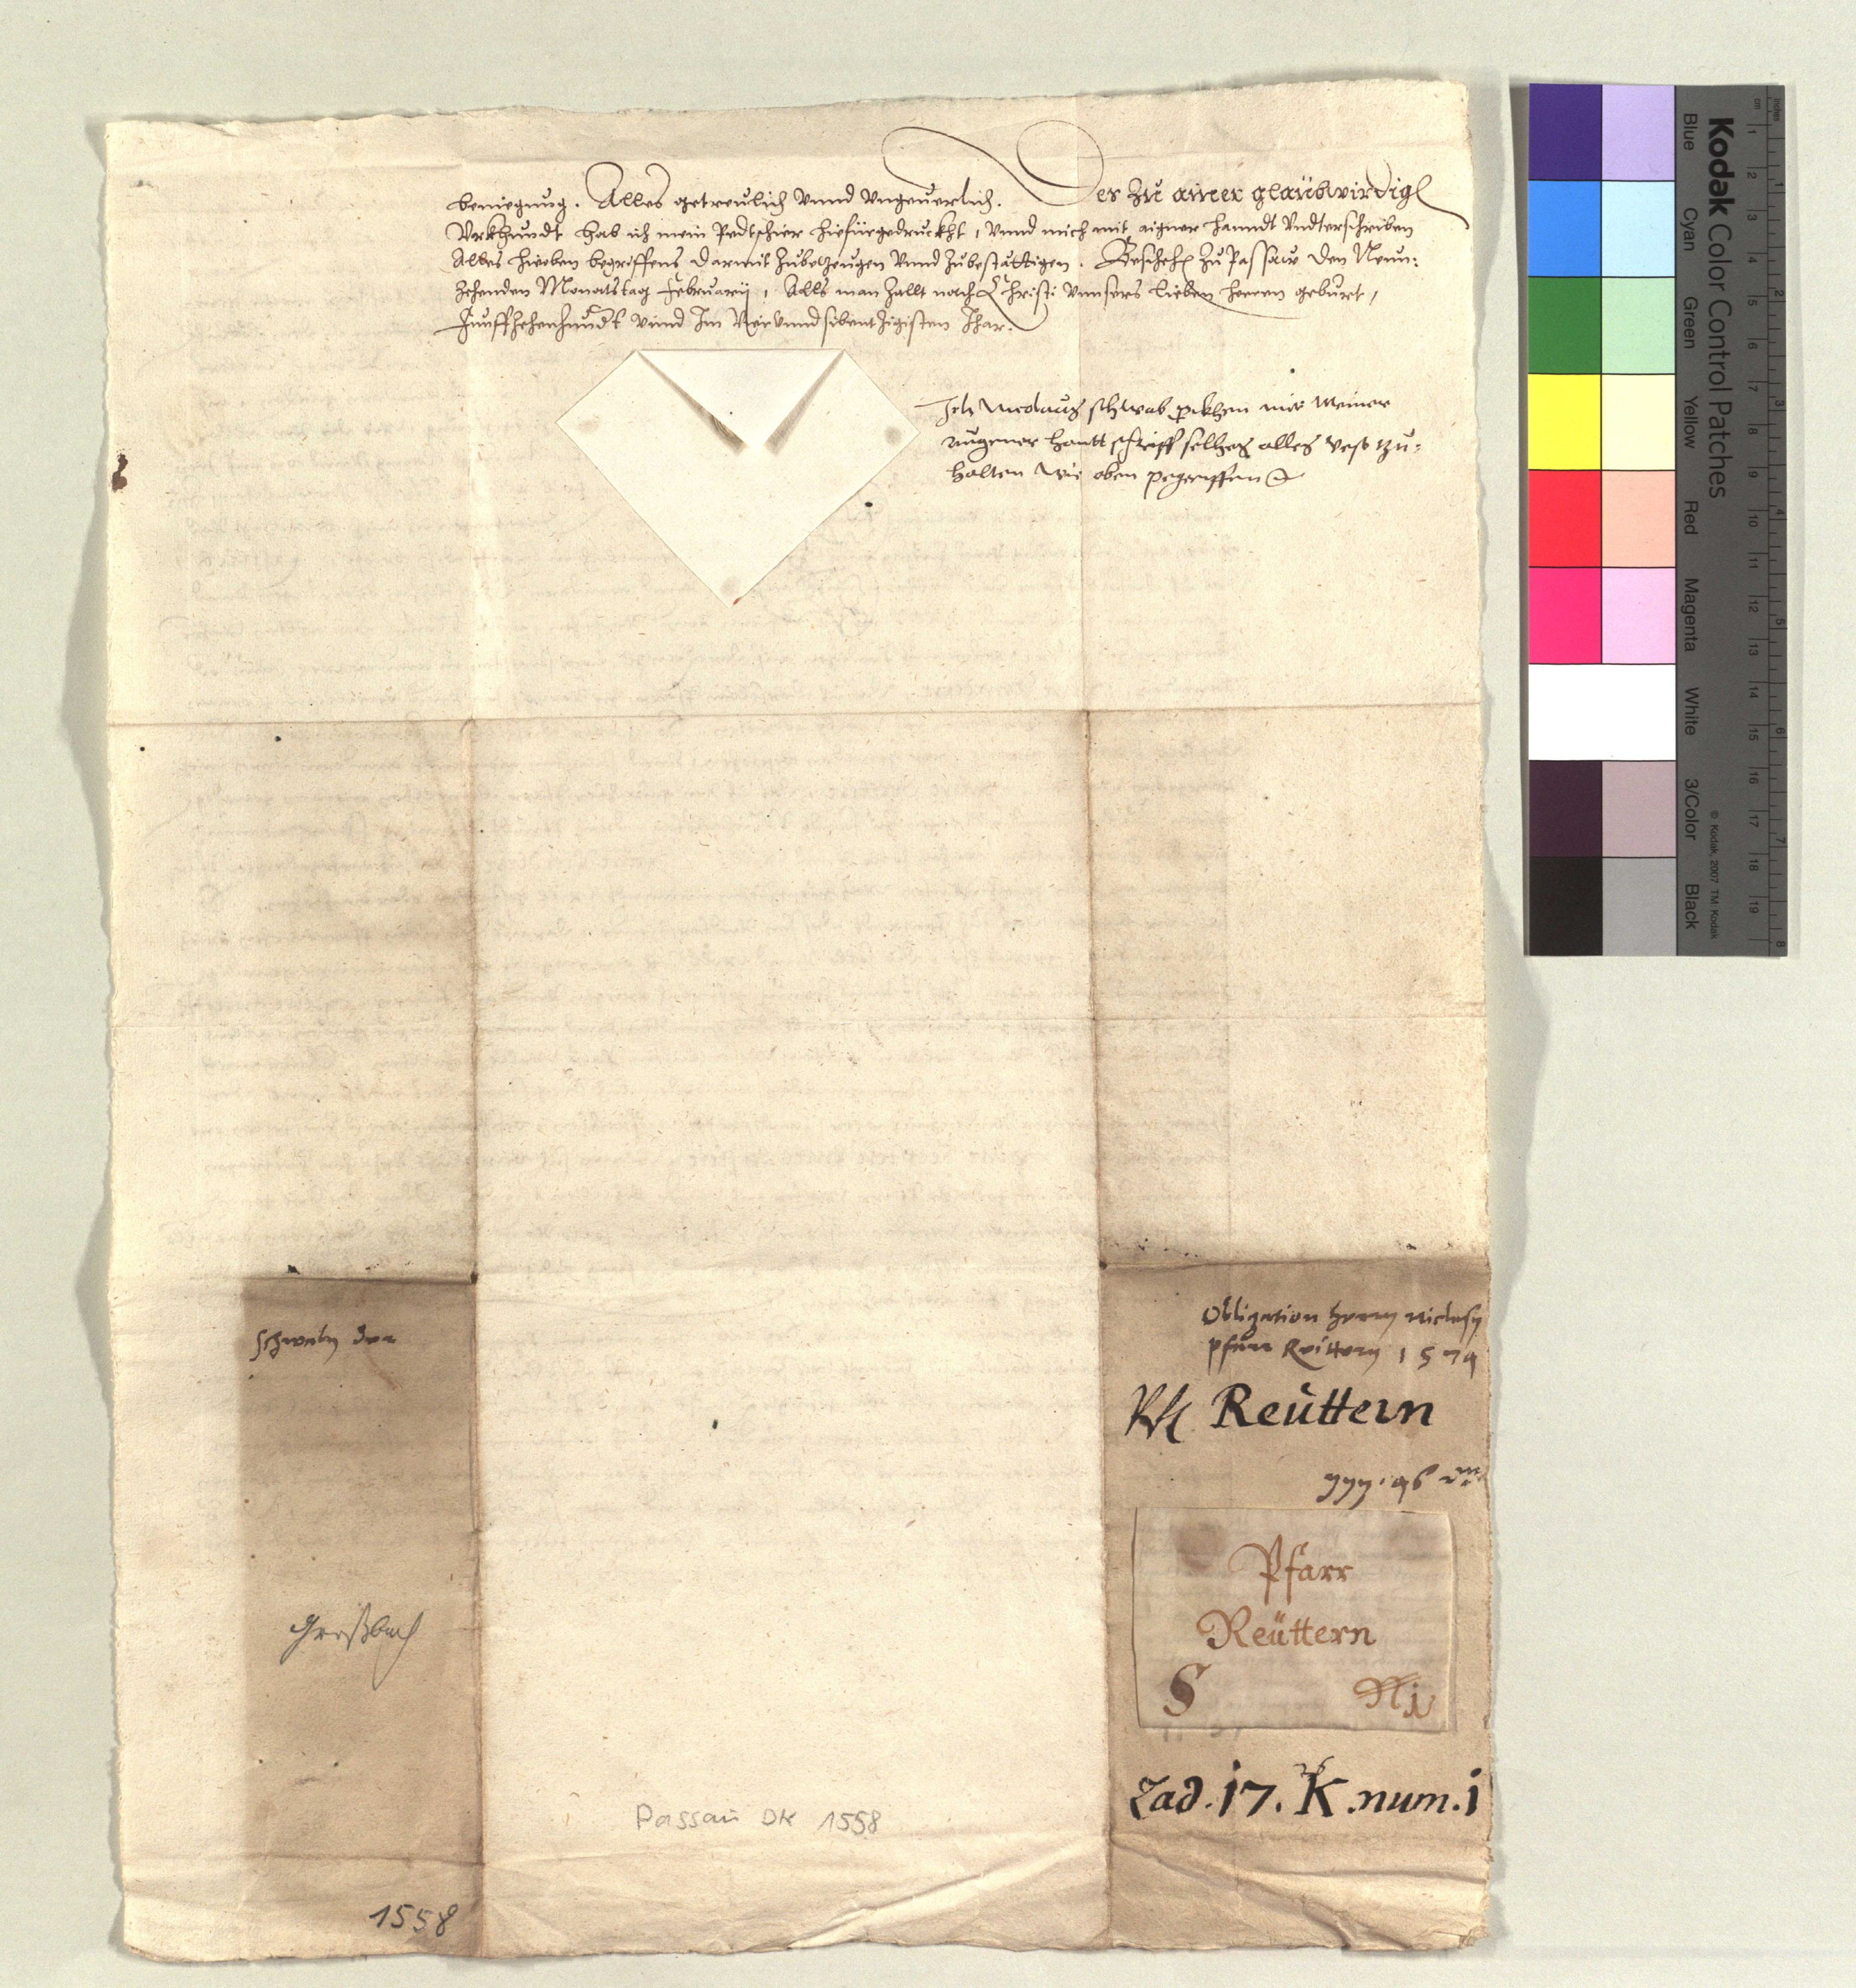 benuegung. Alles getreulich vnnd vngeuerlich. Der zu ainer glaubwirdigen
Vrkhundt hab ich mein Pedtschier hiefürgedruckht, vnnd mich mit aigner hanndt vndterschriben
Alles hieoben begriffens darmit zubetzeugen vnnd zubestättigen. Geschehen zu Passaw den Neun:
zehenden Monatstag Februarij, Alls man zallt nach Christi vnnsers lieben herren geburt,
Funffzehenhundt vnnd Im Vier vnnd sibentzigisten Jhar.
Ich Nicolaus schwab pekhen mit Meiner
aigener hantt schrifft solhes alles vest tzu:
halten wie oben pegriffen
Schwaben der
Obligation herrn Niclasen
pfarr Reuttern 1574
Reüttern
Griesbach
Pfarr
Reüttern
S Ni
Lad. i7. K. num. i
Passau DK 1558
1558
Kodak Color Control Patches
Blue Cyan Green Yellow Red Magenta White 3/Color Black
© Kodak, 2007 TM: Kodak
inches 1 2 3 4 5 6 7 8
cm 1 2 3 4 5 6 7 8 9 10 11 12 13 14 15 16 17 18 19